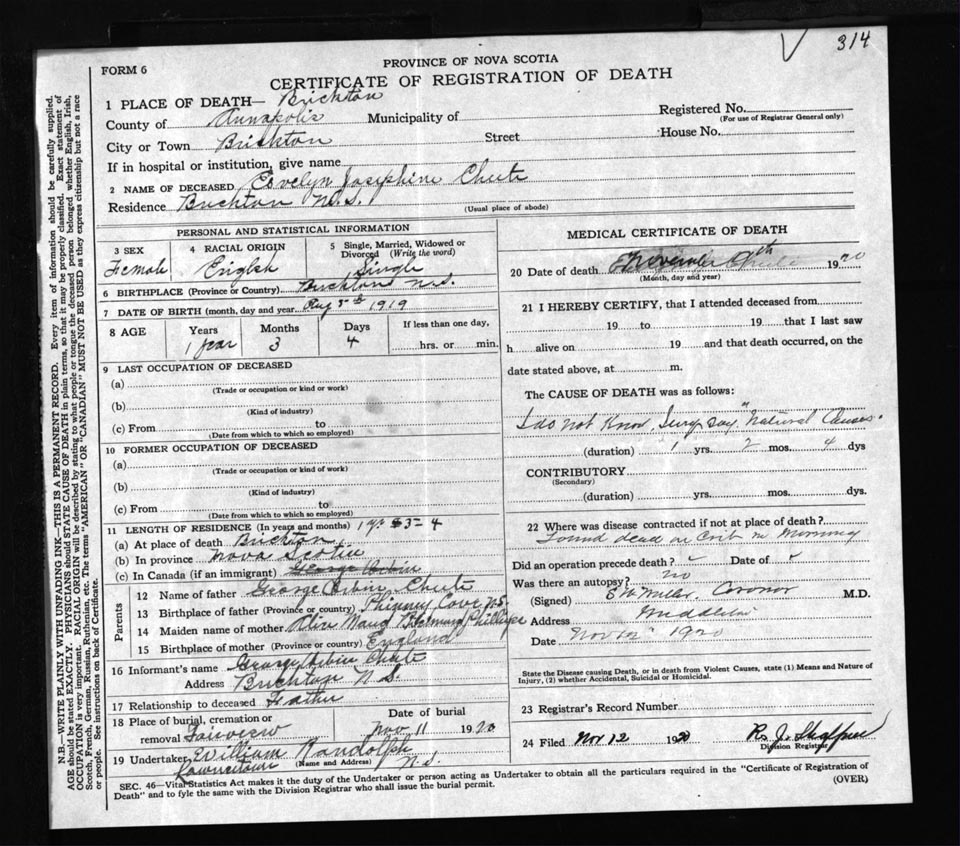 314
FORM 6
PROVINCE OF NOVA SCOTIA
CERTIFICATE OF REGISTRATION OF DEATH
1 PLACE OF DEATH— Brickton
County of Annapolis Municipality of Registered No.
(For use of Registrar General only)
City or Town Brickton Street House No.
If in hospital or institution, give name
2 NAME OF DECEASED Evelyn Josephine Chute
Residence Brickton N.S.
(Usual place of abode)
PERSONAL AND STATISTICAL INFORMATION
3 SEX 4 RACIAL ORIGIN 5 Single, Married, Widowed or Divorced (Write the word)
Female English Single
6 BIRTHPLACE (Province or Country) Brickton N.S.
7 DATE OF BIRTH (month, day and year Aug 5th 1919
8 AGE Years Months Days If less than one day,
1 year 3 4 hrs. or min.
9 LAST OCCUPATION OF DECEASED
(a)
(Trade or occupation or kind or work)
(b)
(Kind of industry)
(c) From to
(Date from which to which so employed)
10 FORMER OCCUPATION OF DECEASED
(a)
(Trade or occupation or kind of work)
(b)
(Kind of industry)
(c) From to
(Date from which to which so employed)
11 LENGTH OF RESIDENCE (In years and months) 1 yr 3 - 4
(a) At place of death Brickton
(b) In province Nova Scotia
(c) In Canada (if an immigrant) George Orbin
Parents
12 Name of father George Orbin Chute
13 Birthplace of father (Province or country) Phinney Cove N.S.
14 Maiden name of mother Alice Maud Phillips
15 Birthplace of mother (Province or country) England
16 Informant's name George Orbin Chute
Address Brickton N.S.
17 Relationship to deceased Father
18 Place of burial, cremation or removal Fairview Date of burial Nov 11 1920
19 Undertaker William Randolph
(Name and Address)
Lawrencetown N.S.
MEDICAL CERTIFICATE OF DEATH
20 Date of death November 9th 1920
(Month, day and year)
21 I HEREBY CERTIFY, that I attended deceased from
19 to 19 that I last saw
h alive on 19 and that death occurred, on the
date stated above, at m.
The CAUSE OF DEATH was as follows:
I do not know, say "Natural Causes"
(duration) 1 yrs. 2 mos. 4 dys
CONTRIBUTORY
(Secondary)
(duration) yrs. mos. dys.
22 Where was disease contracted if not at place of death?
Found dead in Crib in Morning
Did an operation precede death? Date of
Was there an autopsy? no
(Signed) E W Miller, Coronor M.D.
Address Middleton
Date Nov 12 1920
State the Disease causing Death, or in death from Violent Causes, state (1) Means and Nature of
Injury, (2) whether Accidental, Suicidal or Homicidal.
23 Registrar's Record Number
24 Filed Nov 12 1920 R. J. Shaffner
Division Registrar
SEC. 46—Vital Statistics Act makes it the duty of the Undertaker or person acting as Undertaker to obtain all the particulars required in the "Certificate of Registration of
Death" and to fyle the same with the Division Registrar who shall issue the burial permit.
(OVER)
N.B.—WRITE PLAINLY WITH UNFADING INK—THIS IS A PERMANENT RECORD. Every item of information should be carefully supplied.
AGE should be stated EXACTLY. PHYSICIANS should STATE CAUSE OF DEATH in plain terms, so that it may be properly classified. Exact statement of
OCCUPATION is very important. RACIAL ORIGIN will be described by stating to what people or tongue the deceased person belonged whether English, Irish,
Scotch, French, German, Russian, Ruthenian, etc. The terms "AMERICAN" OR "CANADIAN" MUST NOT BE USED as they express citizenship but not a race
or people. See instructions on back of Certificate.